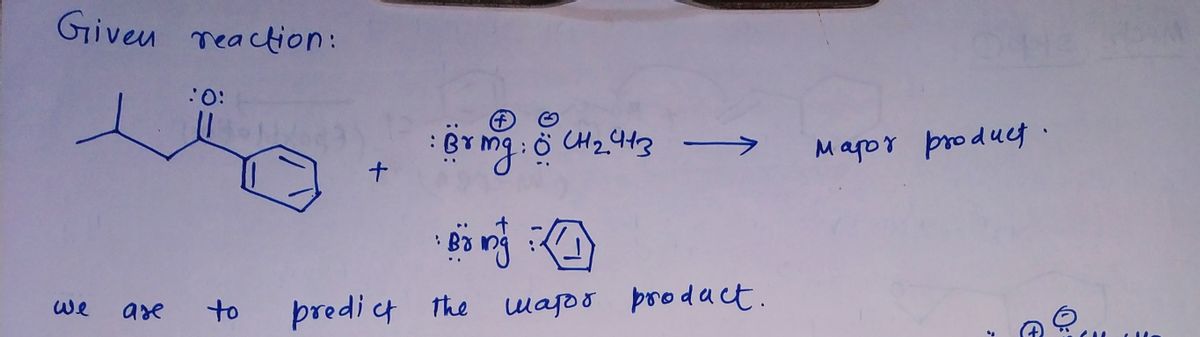 Given reaction:
:O:
+ :Br Mg ⊕ : ⊖ O CH2CH3 → Major product.
:Br Mg + : -
we are to predict the major product.